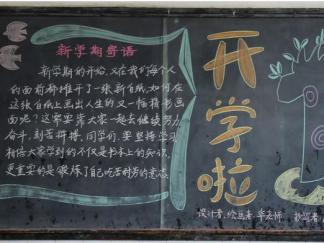 新学期寄语
新学期的开始,又在我们每个人
的面前都摊开了一张新白纸,如何在
这张白纸上画出人生的又一幅精彩画
面呢?这需要靠大家一起去继续努力
奋斗,刻苦拼搏,同学们,要坚持学习
相信大家学到的不仅是书本上的知识,
更重要的是锻炼了自己吃苦耐劳的意志。
开学啦
设计者,绘画者:华老师
抄写者: